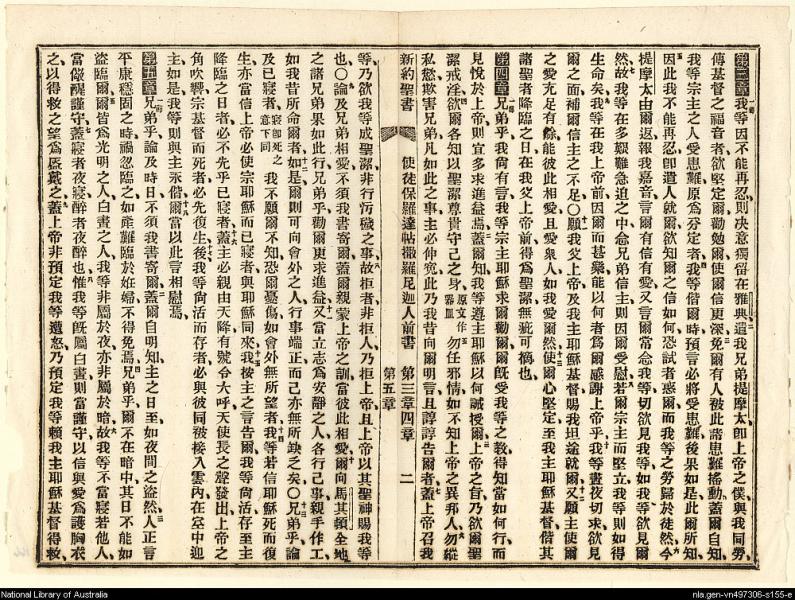 第三章 我等因不能再忍則决意獨留在雅典遣我兄弟提摩太即上帝之僕與我同勞
傳基督之福音者欲堅定爾勸勉爾使爾信更深免爾有人被此諸患難搖動蓋爾自知
我等宗主之人受患難原爲分定者我等偕爾時預言必將受患難後果如是此爾所知
因此我不能再忍卽遣人就爾欲知爾之信如何恐試者惑爾而我等之勞歸於徒然今
提摩太由爾返報我嘉音言爾有信有愛又言爾當念我等切欲見我等如我等欲見爾
然故我等在多艱難急迫之中念兄弟信主則因爾受慰若爾宗主而堅立我等則如得
生命矣我等在我上帝前因爾而甚樂能以何者爲爾感謝上帝乎我等晝夜切求欲見
爾之面補爾信主之不足〇願我父上帝及我主耶穌基督賜我坦途就爾又願主使爾
之愛充足有餘能彼此相愛且愛衆人如我愛爾然使爾心堅定至我主耶穌基督偕其
諸聖者降臨之日在我父上帝前得爲聖潔無疵可摘也
第四章 兄弟乎我尙有言我等宗主耶穌求爾勸爾爾旣受我等之教得知當如何行而
見悅於上帝則宜多求進益焉蓋爾知我等遵主耶穌以何誡授爾上帝之旨乃欲爾聖
潔戒淫欲爾各知以聖潔尊貴守己之身原文作器皿勿任邪情如不知上帝之異邦人勿縱
私慾欺害兄弟凡如此之事主必伸寃此乃我昔向爾明言且諄諄告爾者蓋上帝召我
新約聖書 使徒保羅達帖撒羅尼迦人前書 第三章四章 第五章 二
等乃欲我等成聖潔非行污穢之事故拒者非拒人乃拒上帝且上帝以其聖神賜我等
也〇論及兄弟相愛不須我書寄爾蓋爾親蒙上帝之訓當彼此相愛爾於馬其頓全地
之諸兄弟果如此行兄弟乎勸爾更求進益又當立志爲安靜之人各行己事親手作工
如我昔所命爾者如是爾則可向會外之人行事端正而己亦無所缺乏矣〇兄弟乎論
及已寢者寢卽死之意下同我不願爾不知恐爾憂傷如會外無所望者我等若信耶穌死而復
生亦當信上帝必使宗耶穌而已寢者與耶穌同來我按主之言告爾我等尙活而存至主
降臨之日者必不先乎已寢者蓋主必親由天降有號令大呼天使長之聲發出上帝之
角吹響宗基督而死者必先復生後我等尙活而存者必與彼同被接入雲內在空中迎
主如是我等則與主永偕爾當以此言相慰焉
第五章 兄弟乎論及時日不須我書寄爾蓋爾自明知主之日至如夜間之盜然人正言
平康穩固之時禍忽臨之如產難臨於妊婦不得免焉兄弟乎爾不在暗中其日不能如
盜臨爾爾皆爲光明之人白晝之人我等非屬於夜亦非屬於暗故我等不當寢若他人
當儆醒謹守蓋寢者夜寢醉者夜醉也惟我等旣屬白晝則當謹守以信與愛爲護胸衣
之以得救之望爲盔戴之蓋上帝非預定我等遭怒乃預定我等賴我主耶穌基督得救
National Library of Australia
nla.gen-vn497306-s155-e